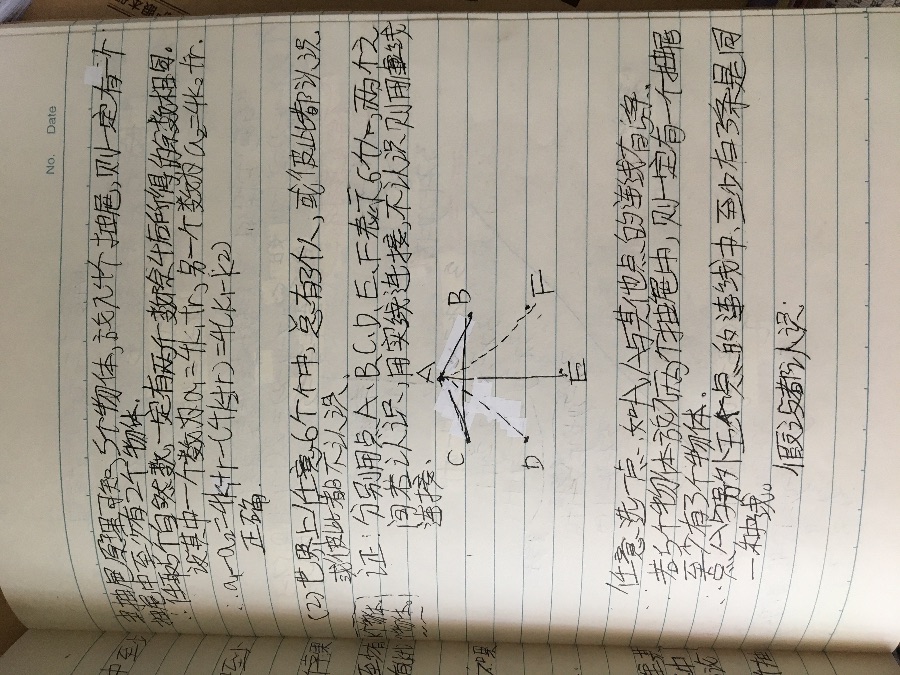 No. Date
由抽屉原理可知:5个物体,放入4个抽屉,则一定有一个
抽屉中至少有2个物体.
∴任取5个自然数,一定有两个数除4后所得的余数相同。
设其中一个数为a₁=4k₁+r,另一个数为a₂=4k₂+r.
∴a₁-a₂=4k₁+r-(4k₂+r)=4(k₁-k₂)
正确.
(2) 世界上任意6个个中,总有3个人,或彼此都认识
或彼此都不认识
证:分别用点A、B、C、D、E、F表示6个人,两个之
间若认识,用实线连接,不认识则用虚线
连接.
A
B
C
D
E
F
任意选一点:如A,A与其他点的连线有5条.
若5个物体放入两个抽屉中,则一定有一个抽屉
至少有3个物体.
∴点A与另外五个点的连线中,至少有3条是同
一种线。
假设都认识: